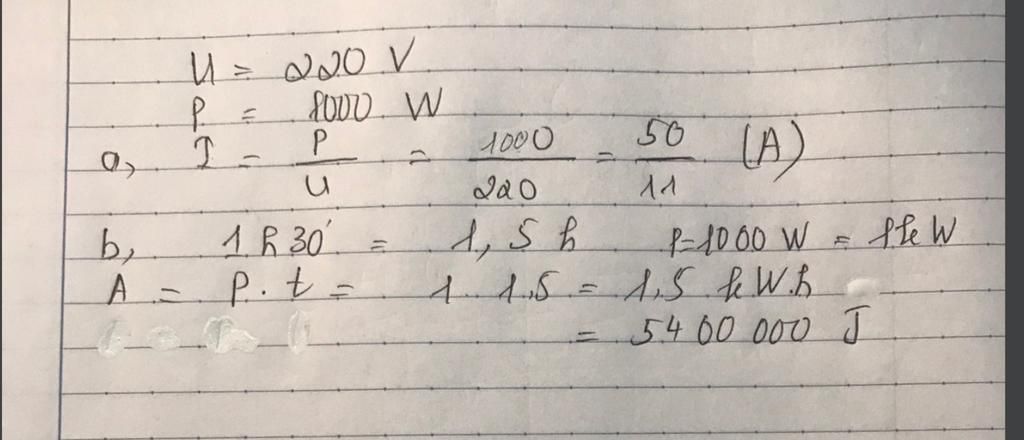 U = 220 V
P = 1000 W
a, I = P/U = 1000/220 = 50/11 (A)
b, 1h30' = 1,5 h P=1000 W = 1kW
A = P.t = 1.1,5 = 1,5 kW.h
= 5400 000 J